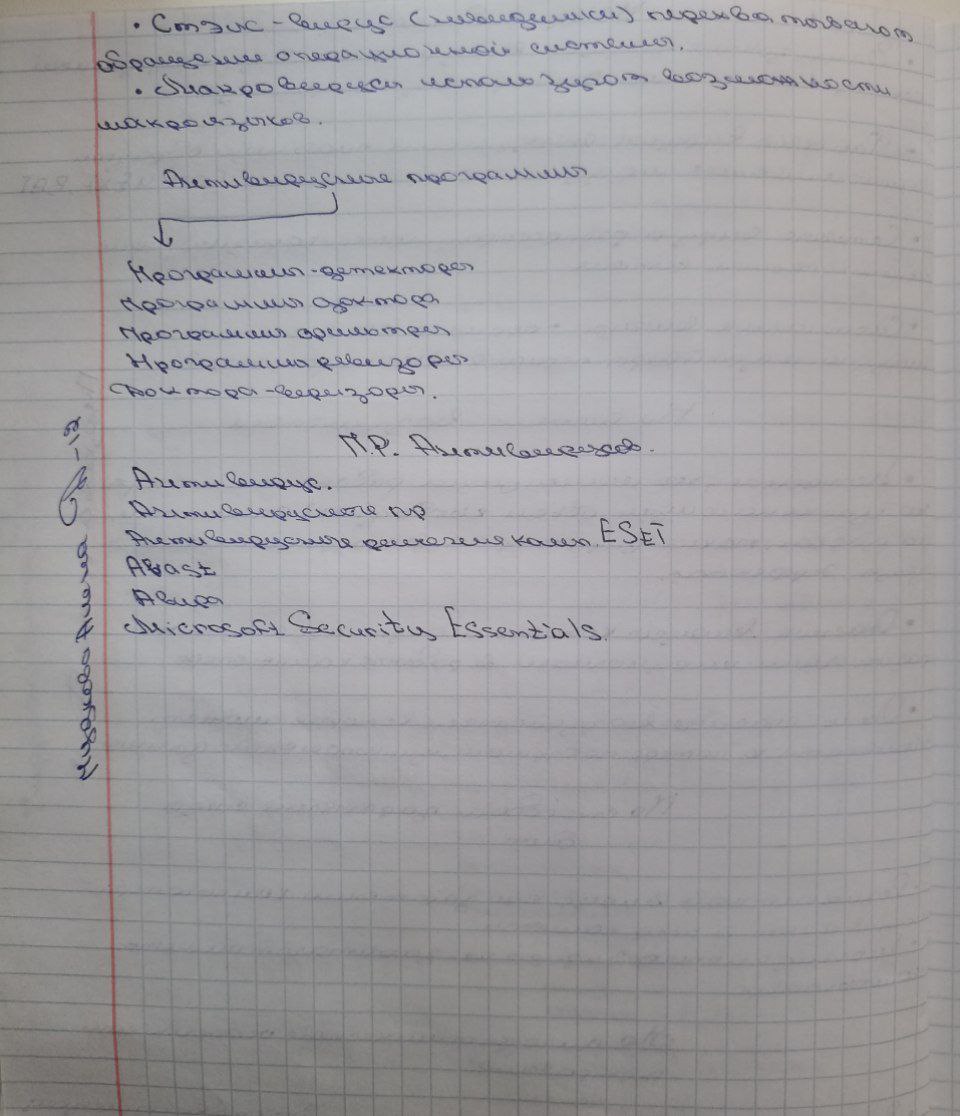 • Стэлс-вирус (невидимки) перехватывают
обращения операционной системы.
• Макровирусы используют возможности
макроязыков.
Антивирусные программы
Программы-детекторы
Программы доктора
Программы фильтры
Программы ревизоры
Доктора-ревизоры.
П.Р. Антивирусов.
Антивирус.
Антивирусные пр
Антивирусные решения комп. ESET
Avast
Авира
Microsoft Security Essentials.
Алина
-12